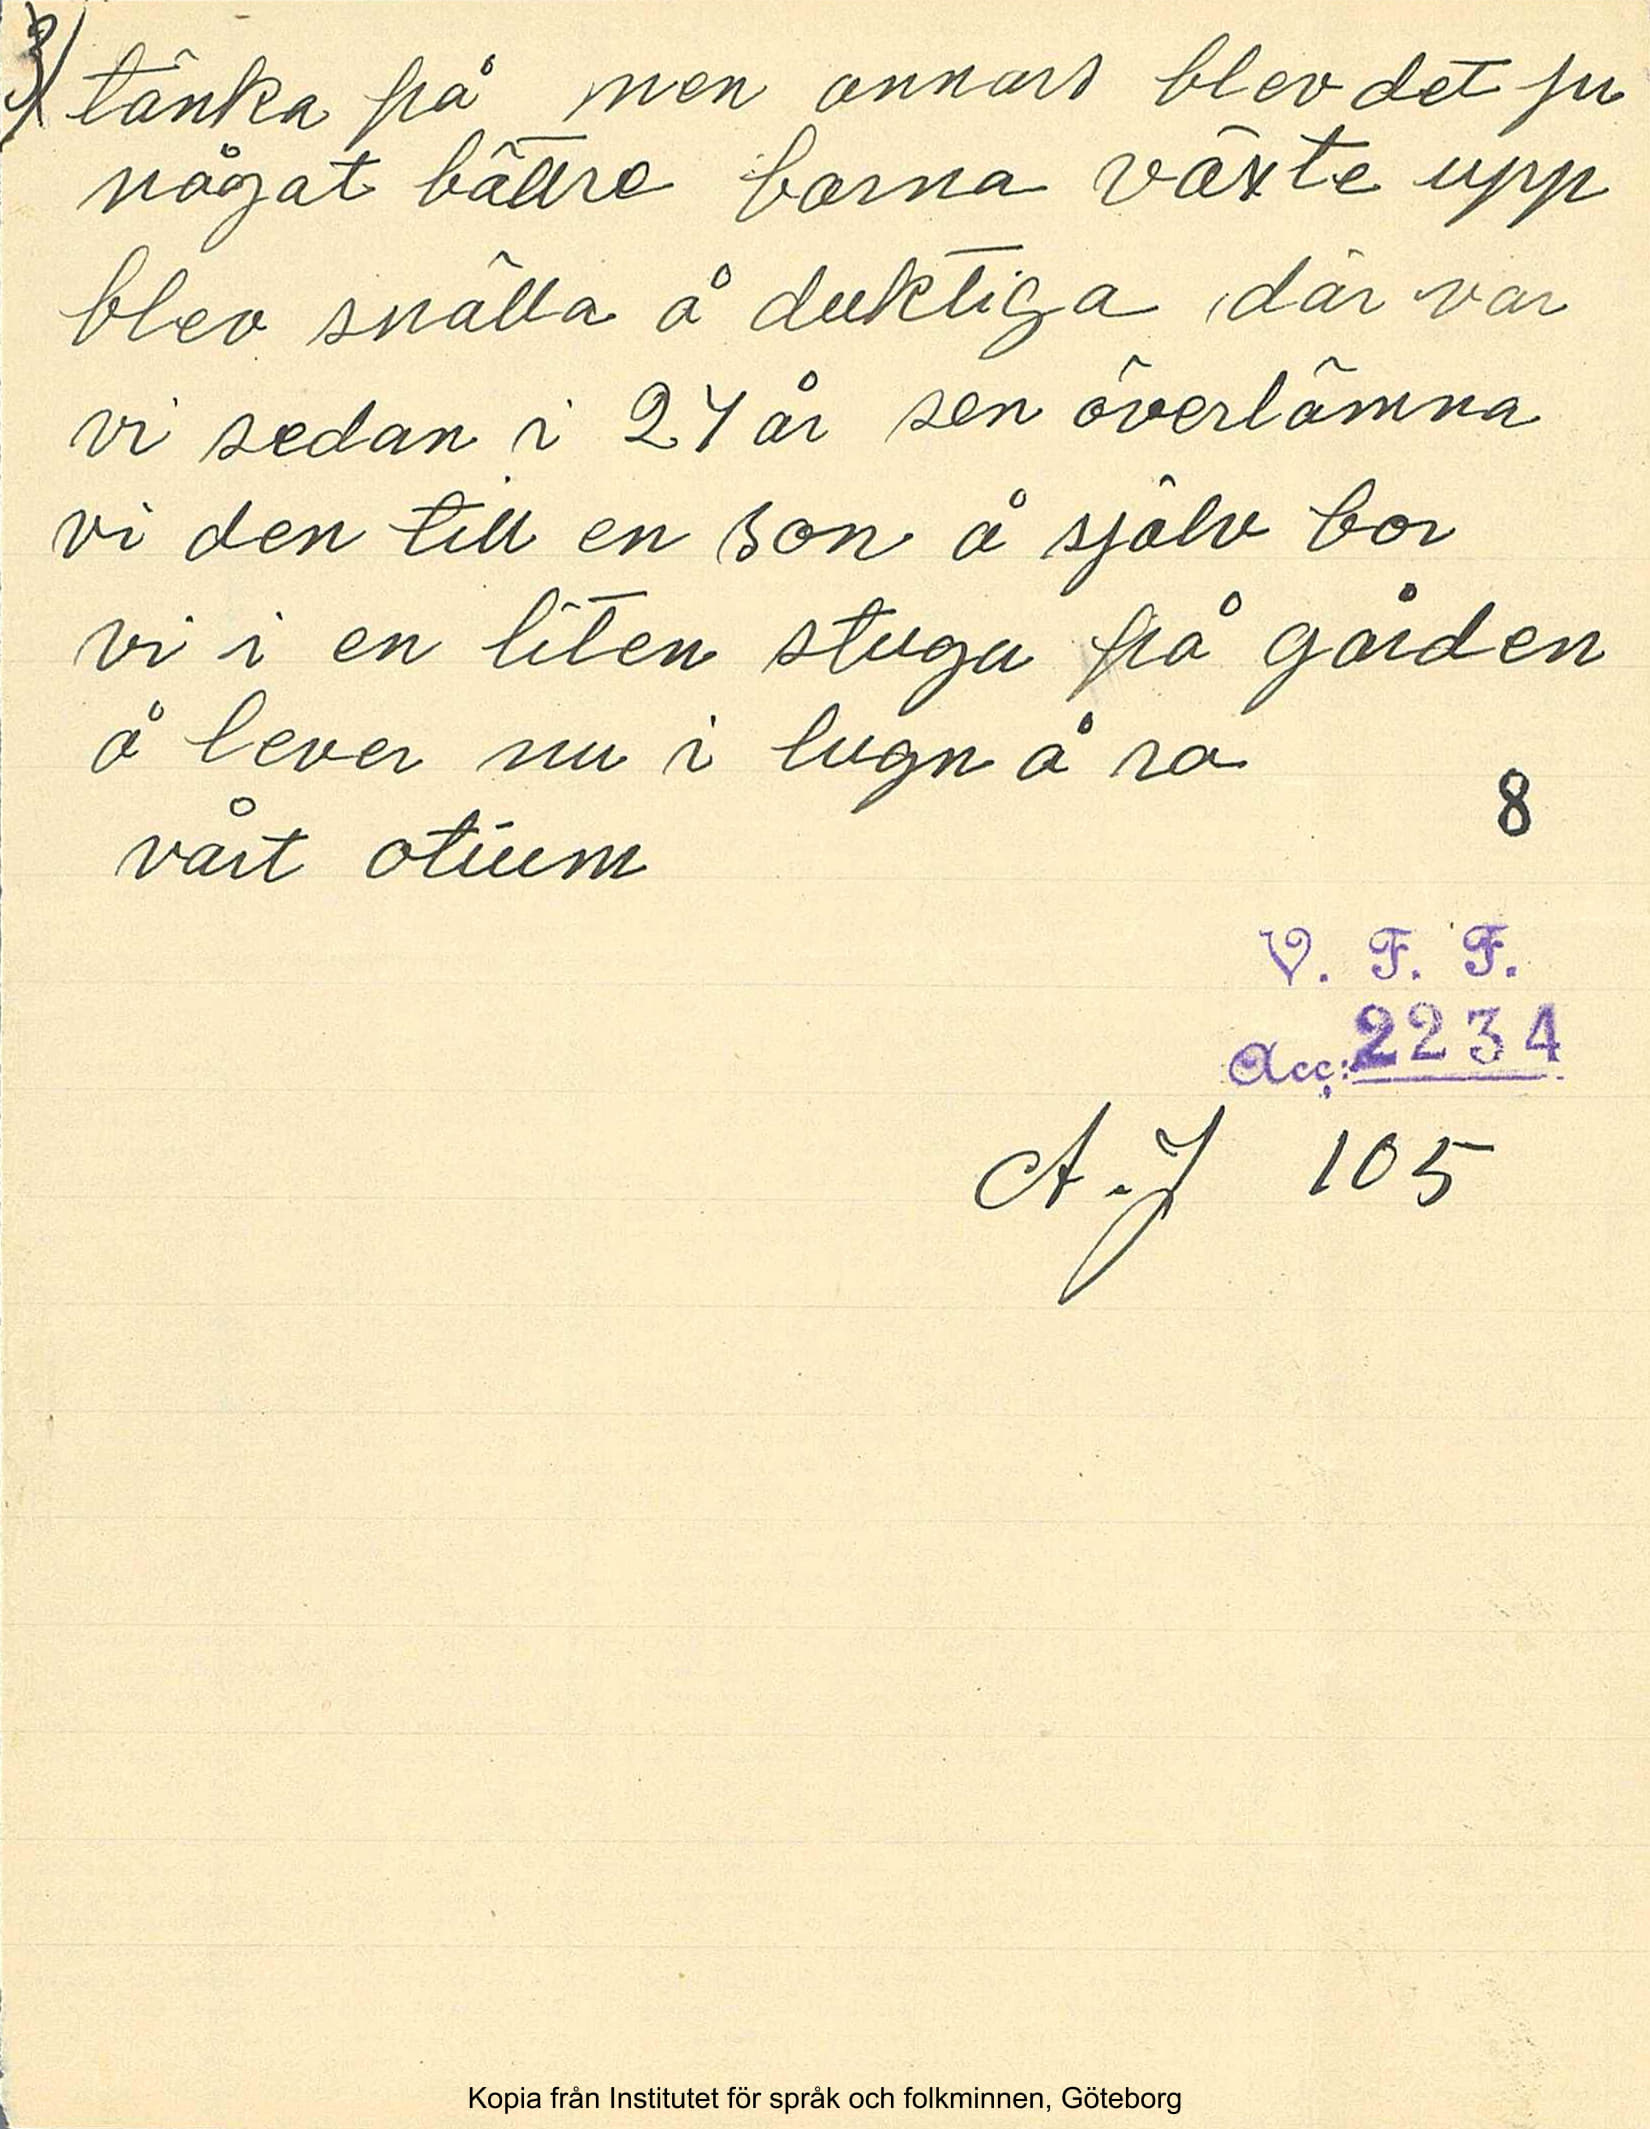 3)
tänka på men annars blev det ju
något bättre barna växte upp
blev snälla å duktiga där var
vi sedan i 27 år sen överlämna
vi den till en son å själv bor
vi i en liten stuga på gården
å lever nu i lugn å ro
vårt otium
8
V. F. F.
Acc: 2234
A. J 105
Kopia från Institutet för språk och folkminnen, Göteborg